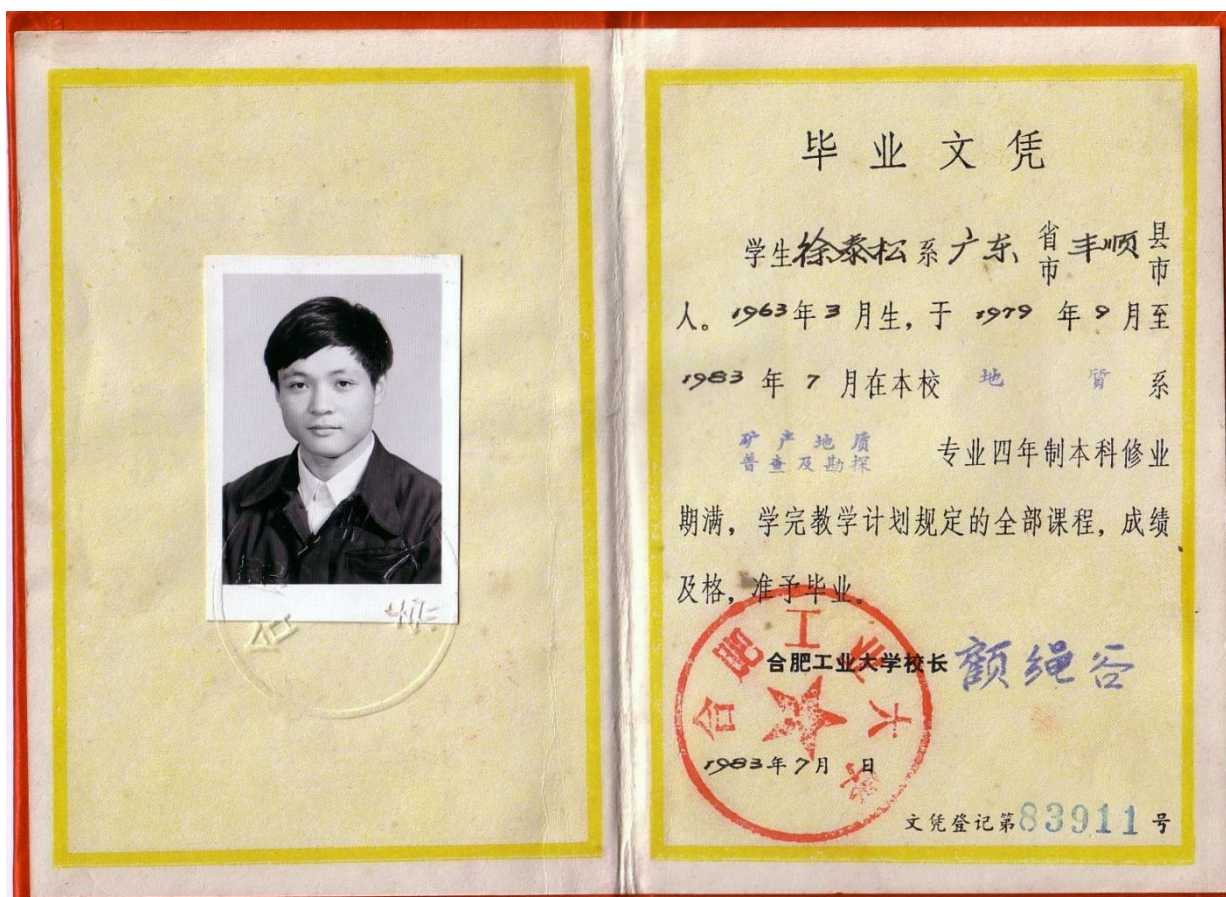 毕业文凭
学生徐泰松系广东省市丰顺县市
人。1963年3月生，于1979年9月至
1983年7月在本校 地质 系
矿产地质
普查及勘探 专业四年制本科修业
期满，学完教学计划规定的全部课程，成绩
及格，准予毕业。
合肥工业大学校长
合肥工业大学
1983年7月 日
文凭登记第83911号